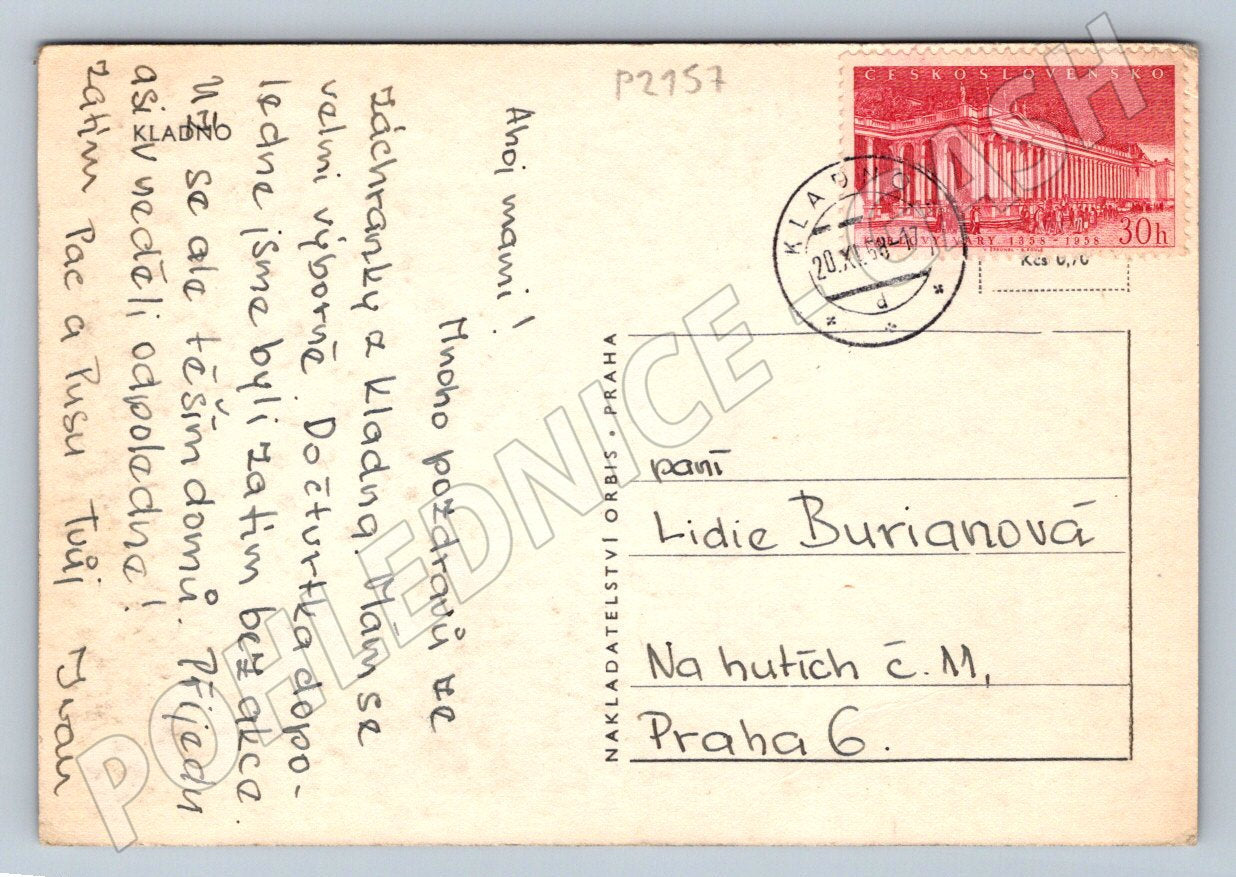 P2157
ČESKOSLOVENSKO
KARLOVY VARY 1358-1958 30h
KLADNO
20.XI.58-17
d
Kčs 0,70
KLADNO
Ahoj mami!
Mnoho pozdravů ze
záchranky z kladna. Mám se
velmi výborně. Do čtvrtka dopo-
ledne jsme byli zatím bez akce
Už se ale těším domů. Přijedu
asi v neděli odpoledne!
zatím Pac a Pusu tvůj Ivan
NAKLADATELSTVÍ ORBIS • PRAHA
paní
Lidie Burianová
Na hutích č. 11,
Praha 6.
POHLEDNICE - SASH